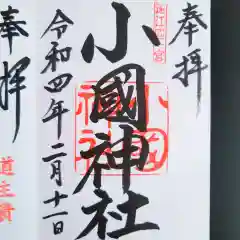 奉拝
小國神社
令和四年二月十一日
奉拝
道主貴